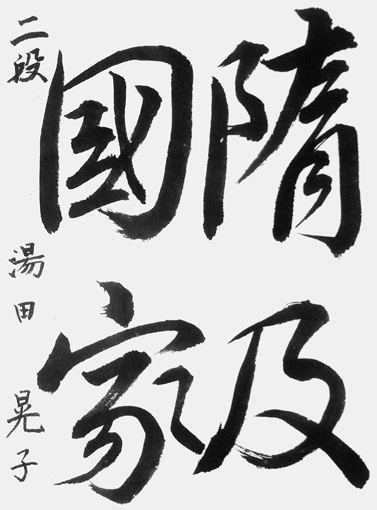 隋及
國家
二段 湯田 晃子